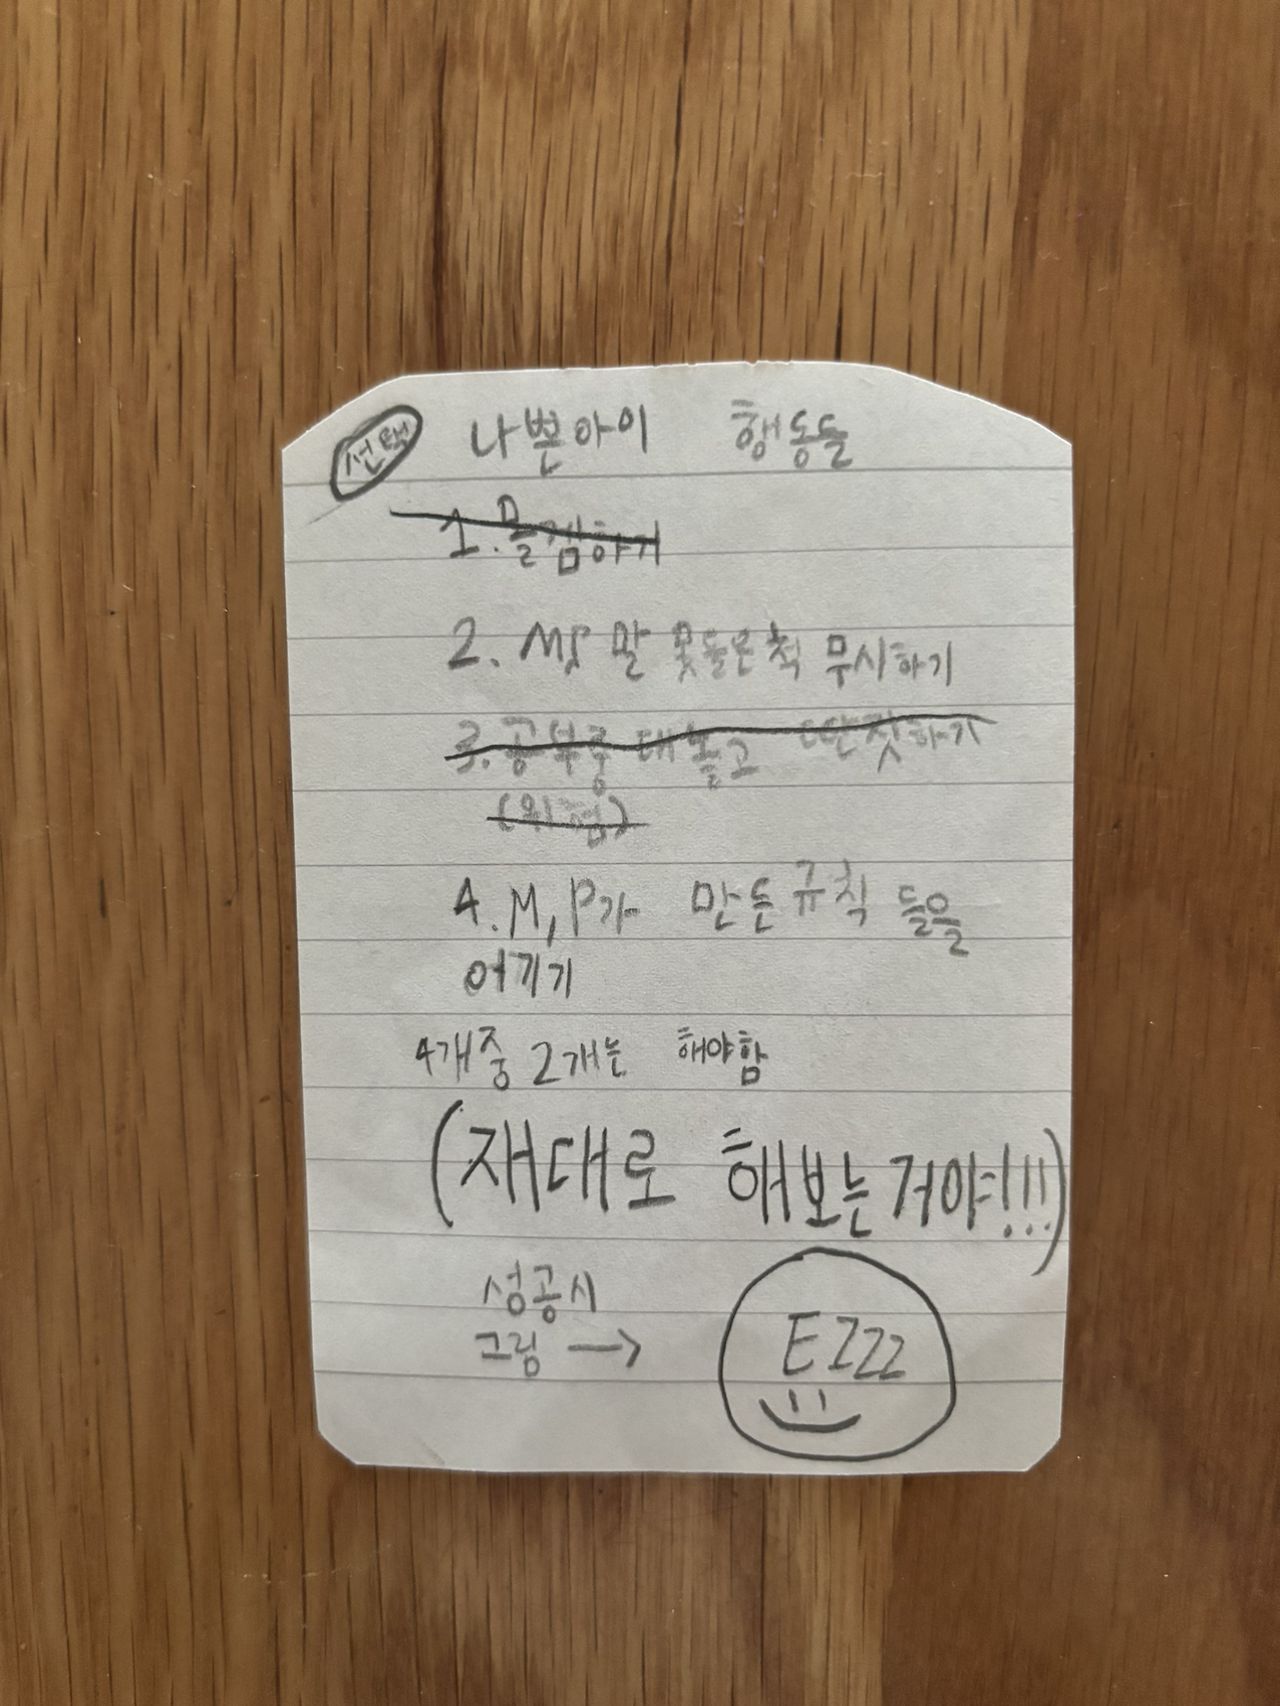 선택 나쁜아이 행동들
1. 몰겜하기
2. MS 말 못들은척 무시하기
3. 공부중 대놓고 딴짓하기
(위험)
4. M, P가 만든규칙 들을
어기기
4개중 2개는 해야함
(재대로 해보는거야!!!)
성공시
그림 →
EZZZ